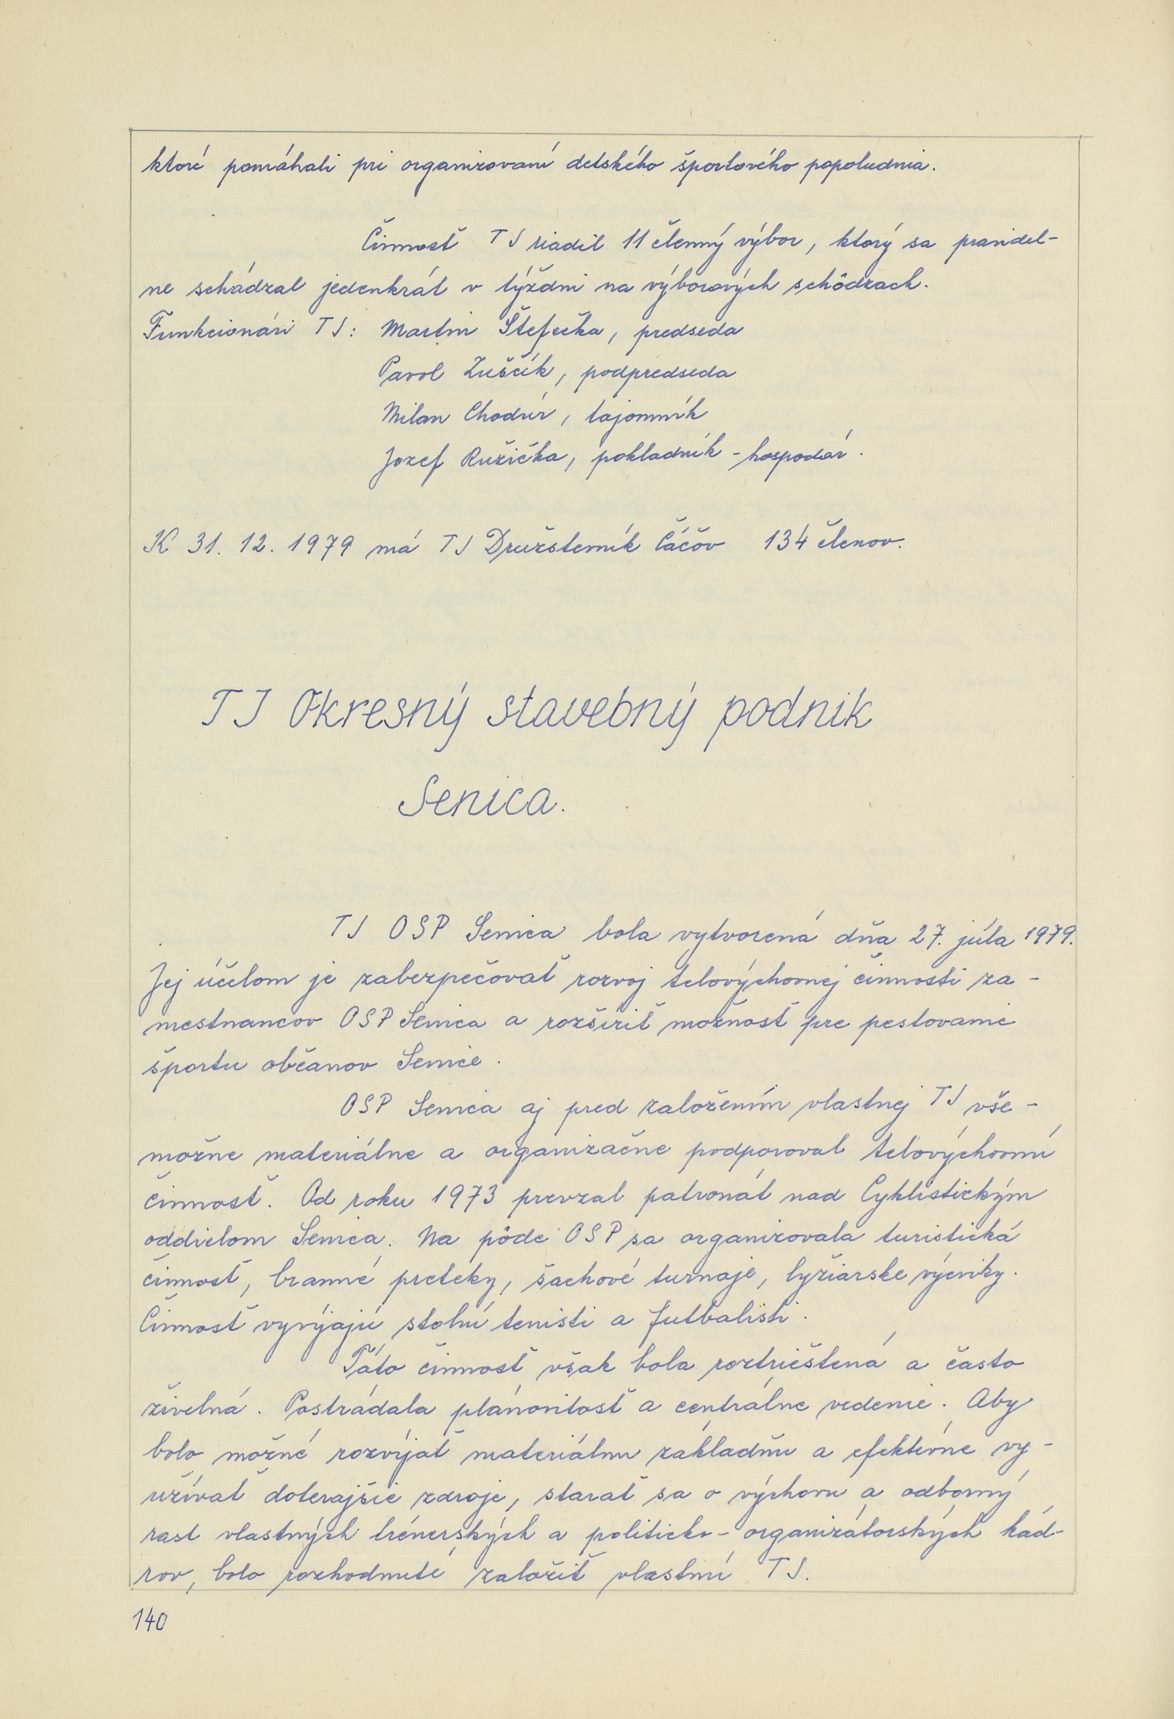 ktoré pomáhali pri organizovaní detského športového popoludnia.
Činnosť TJ riadil 11 členný výbor, ktorý sa pravidel-
ne schádzal jedenkrát v týždni na výborových schôdzach.
Funkcionári TJ: Martin Štefečka, predseda
Pavol Zuščík, podpredseda
Milan Chodúr, tajomník
Jozef Ružička, pokladník - hospodár.
K 31. 12. 1979 má TJ Družstevník Čáčov 134 členov.
TJ Okresný stavebný podnik
Senica.
TJ OSP Senica bola vytvorená dňa 27. júla 1979.
Jej účelom je zabezpečovať rozvoj telovýchovnej činnosti za-
mestnancov OSP Senica a rozšíriť možnosť pre pestovanie
športu občanov Senice.
OSP Senica aj pred založením vlastnej TJ vše-
možne materiálne a organizačne podporoval telovýchovnú
činnosť. Od roku 1973 prevzal patronát nad Cyklistickým
oddielom Senica. Na pôde OSP sa organizovala turistická
činnosť, branné preteky, šachové turnaje, lyžiarske výcviky.
Činnosť vyvýjajú stolní tenisti a futbalisti.
Táto činnosť však bola roztrieštená a často
živelná. Postrádala plánovitosť a centrálne vedenie. Aby
bolo možné rozvýjať materiálnu základňu a efektívne vy-
užívať doterajšie zdroje, starať sa o výchovu a odborný
rast vlastných trénerských a politicko-organizátorských kád-
rov, bolo rozhodnuté založiť vlastnú TJ.
140